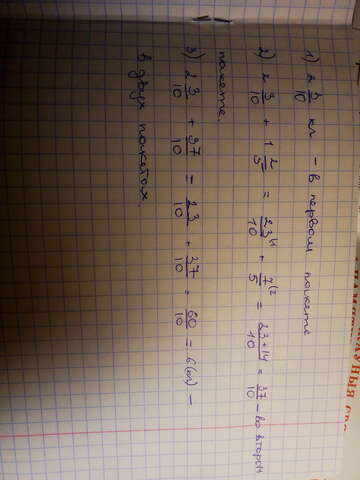 1) 2 3/10 кг – в первом пакете
2) 2 3/10 + 1 2/5 = 23/10 + 7/5 = 23+14/10 = 37/10 – во втором
пакете.
3) 2 3/10 + 37/10 = 23/10 + 37/10 = 60/10 = 6 (кг) –
в двух пакетах.